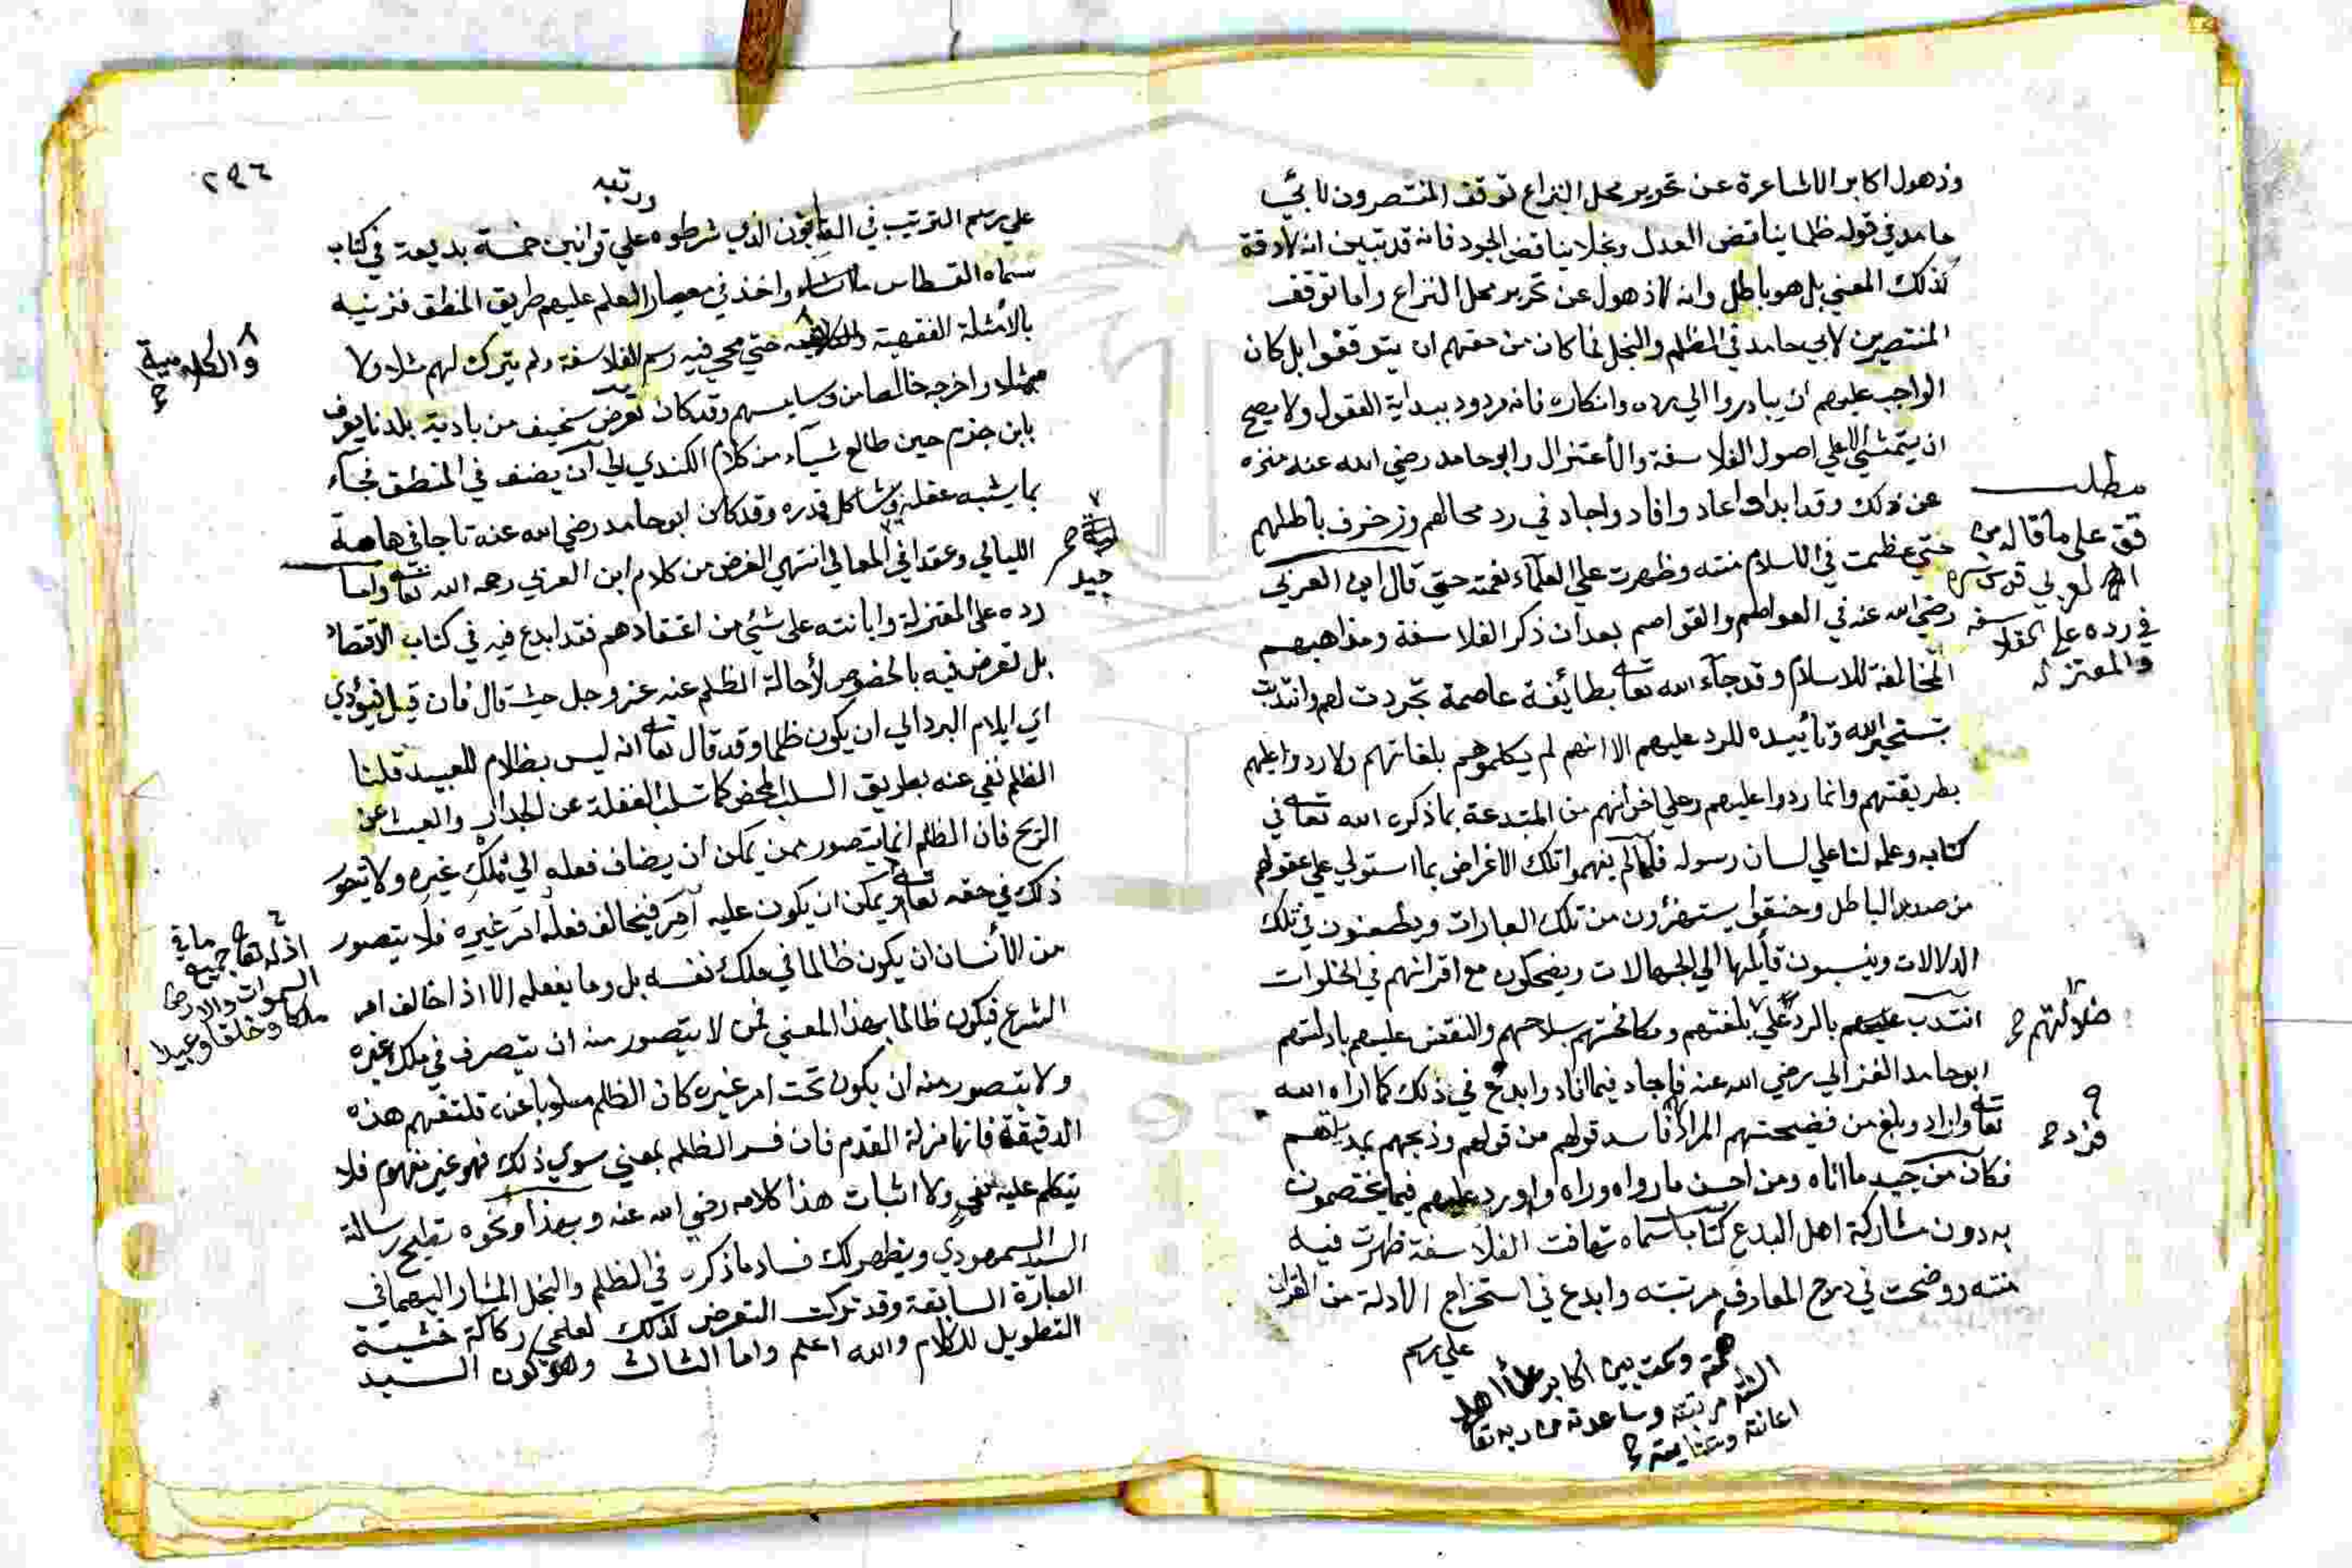 وذهول اكابر الاشاعرة عن تحرير محل النزاع توقف المنتصرون لابي
حامد في قوله ظلما يناقض العدل وبخلا يناقض الجود فانه قد تبين انه لا دقة
لذلك المعني بل هو باطل وانه لا ذهول عن تحرير محل النزاع واما توقف
المنتصرين لابي حامد في الظلم والبخل فما كان من حقهم ان يتوقفوا بل كان
الواجب عليهم ان يبادروا الي رده وانكاره فانه مردود ببداية العقول ولا يصح
ان يتمشي الا علي اصول الفلاسفة والاعتزال وابو حامد رضي الله عنه منزه
عن ذلك وقد ابدا واعاد وافاد واجاد في رد محالهم وزخرف باطلهم
حتي عظمت في الاسلام منته وظهرت علي العلماء نعمته حتي قال ابن العربي
رضي الله عنه في العواصم والقواصم بعد ان ذكر الفلاسفة ومذاهبهم
المخالفة للاسلام وقد جاء الله تعالى بطائفة عاصمة تجردت لهم وانتدبت
بتسخير الله وتأييده للرد عليهم الا انهم لم يكلموهم بلغاتهم ولا ردوا عليهم
بطريقتهم وانما ردوا عليهم وعلي اخوانهم من المبتدعة بما ذكره الله تعالى في
كتابه وعلمه لنا علي لسان رسوله فلما لم يفهموا تلك الاغراض بما استولي علي عقولهم
من صدء الباطل وطفقوا يستهزؤن من تلك العبارات ويطعنون في تلك
الدلالات وينسبون قائلها الي الجهالات ويضحكون مع اقرانهم في الخلوات
انتدب بالرد علي بلغتهم ومكافحتهم بسلاحهم والنقض عليهم بادلتهم
ابو حامد الغزالي رضي الله عنه فاجاد فيما افاد وابدع في ذلك كما اراه الله
تعالى واراد وبلغ من فضيحتهم المراد فافسد قولهم من قولهم وذبحهم بمديتهم
فكان من جيد ما اتاه ومن احسن ما رواه وراه واورد عليهم فيما يختصمون
به دون مشاركة اهل البدع كتابا سماه تهافت الفلاسفة ظهرت فيه
منته ووضحت في درج المعارف مرتبته وابدع في استخراج الادلة من القران
علي رسم
مطلب
قف على ما قاله
العربي قدس سره
في رده على الفلاسفة
والمعتزلة
ضلالتهم
وبين اكابر علماء اهل
السنة مرتبته وساعدته من ربه تعالى
اعانته وعنايته
٢٩٦
ورتبه
علي رسم الترتيب في القانون الذي شرطوه علي قوانين خمسة بديعة في كتاب
سماه القسطاس ما شاء واخذ في معيار العلم عليهم طريق المنطق فزينه
بالامثلة الفقهية حتي محي فيه رسم الفلاسفة ولم يترك لهم مثلا ولا
ممثلا واخرجه خالصا من دسايسهم وقد كان تعرض سخيف من بادية بلدنا يعرف
بابن حزم حين طالع شيئا من كلام الكندي الي ان يصنف في المنطق فجاء
بما يشبه عقله ويشاكل قدره وقد كان ابو حامد رضي الله عنه تاجا في هامة
الليالي وعقدا في المعالي انتهي الغرض من كلام ابن العربي رحمه الله تعالى واما
رده على المعتزلة وابانته على شئي من اعتقادهم فقد ابدع فيه في كتاب الاقتصاد
بل تعرض فيه بالخصوص لاحالة الظلم عنه عز وجل حيث قال فان قيل فيؤدي
اي ايلام البري الي ان يكون ظلما وقد قال تعالى انه ليس بظلام للعبيد قلنا
الظلم نفي عنه بطريق السلب المحض كما تسلب الغفلة عن الجدار والعبث عن
الريح فان الظلم انما يتصور ممن يمكن ان يضاف فعله الي ملك غيره ولا يتصور
ذلك في حقه تعالى ويمكن ان يكون عليه امر فيخالف فعله امر غيره فلا يتصور
من الانسان ان يكون ظالما في ملك نفسه بل وما يفعله الا اذا خالف امر
الشرع فيكون ظالما بهذا المعني فمن لا يتصور منه ان يتصرف في ملك غيره
ولا يتصور منه ان يكون تحت امر غيره كان الظلم مسلوبا عنه فلتفهم هذه
الدقيقة فانها مزلة القدم فان فسر الظلم بمعني سوي ذلك فهو غير مفهوم فلا
يتكلم عليه بنفي ولا اثبات هذا كلامه رضي الله عنه وبهذا ونحوه رسالة
السيد السمهودي ويظهر لك فساد ما ذكره في الظلم والبخل المشار اليهما في
العبارة السابقة وقد تركت التعرض لذلك لعلمي ركاكة خشية
التطويل للكلام والله اعلم واما الثالث وهو كون السيد
والكلامية
جيد
اذ له تعالى جميع ما في
السموات والارض
ملكا وخلقا وعبيدا